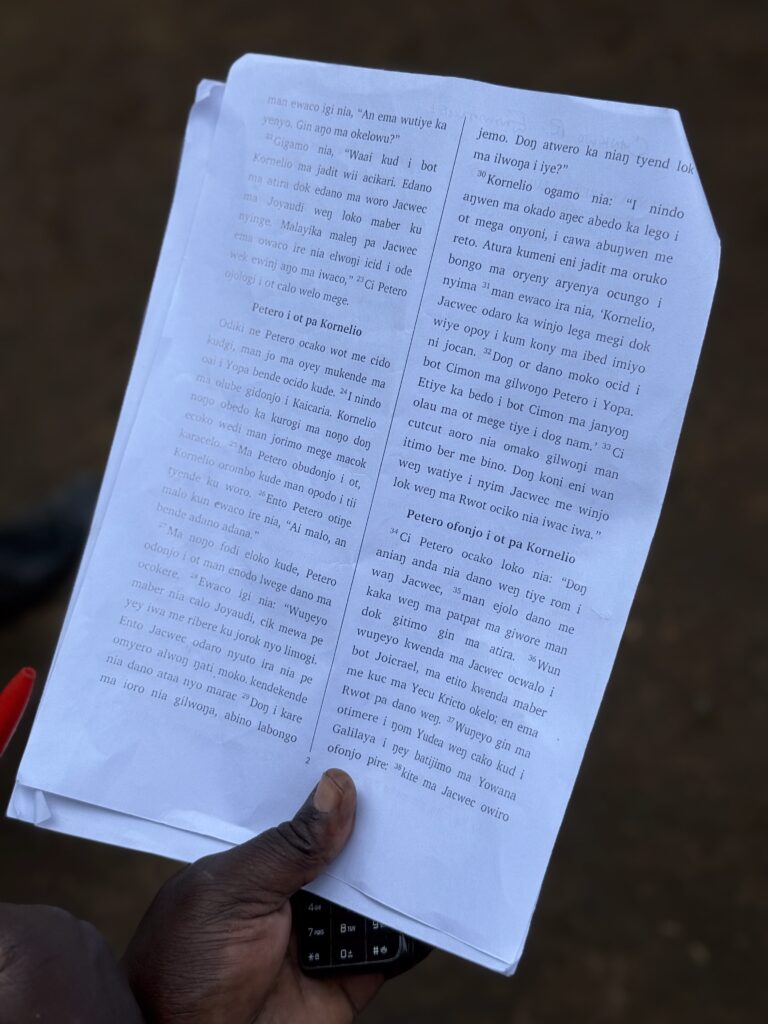 man ewaco igi nia, “An ema wutiye ka
yenyo. Gin aŋo ma okelowu?”
22 Gigamo nia, “Waai kud i bot
Kornelio ma jadit wii acikari. Edano
ma atira dok edano ma woro Jacwec
ma Joyaudi weŋ loko maber ku
nyinge. Malayika maleŋ pa Jacwec
ema owaco ire nia elwoŋi icid i ode
wek ewinj aŋo ma iwaco,” 23 Ci Petero
ojologi i ot calo welo mege.
Petero i ot pa Kornelio
Odiki ne Petero ocako wot me cido
kudgi, man jo ma oyey mukende ma
oai i Yopa bende ocido kude. 24 I nindo
ma olube gidonjo i Kaicaria. Kornelio
noŋo obedo ka kurogi ma noŋo doŋ
ecoko wedi man jorimo mege macok
karacelo. 25 Ma Petero obudonjo i ot,
Kornelio orombo kude man opodo i tii
tyende ku woro. 26 Ento Petero otiŋe
malo kun ewaco ire nia, “Ai malo, an
bende adano adana.”
27 Ma noŋo fodi eloko kude, Petero
odonjo i ot man enodo lwege dano ma
ocokere. 28 Ewaco igi nia: “Wuŋeyo
maber nia calo Joyaudi, cik mewa pe
yey iwa me ribere ku jorok nyo limogi.
Ento Jacwec odaro nyuto ira nia pe
omyero alwoŋ ŋati moko. kendekende
nia dano ataa nyo marac 29 Doŋ i kare
ma ioro nia gilwoŋa, abino labongo
2
jemo. Doŋ atwero ka niaŋ tyend lok
ma ilwoŋa i iye?”
30 Kornelio ogamo nia: “I nindo
aŋwen ma okado aŋec abedo ka lego i
ot mega onyoni, i cawa abuŋwen me
reto. Atura kumeni eni jadit ma oruko
bongo ma oryeny aryenya ocungo i
nyima 31 man ewaco ira nia, ‘Kornelio,
Jacwec odaro ka winjo lega megi dok
wiye opoy i kum kony ma ibed imiyo
ni jocan. 32 Doŋ or dano moko ocid i
bot Cimon ma gilwoŋo Petero i Yopa.
Etiye ka bedo i bot Cimon ma janyoŋ
olau ma ot mege tiye i dog nam.’ 33 Ci
cutcut aoro nia omako gilwoŋi man
itimo ber me bino. Doŋ koni eni wan
weŋ watiye i nyim Jacwec me winjo
lok weŋ ma Rwot ociko nia iwac iwa.”
Petero ofonjo i ot pa Kornelio
34 Ci Petero ocako loko nia: “Doŋ
aniaŋ anda nia dano weŋ tiye rom i
waŋ Jacwec, 35 man ejolo dano me
kaka weŋ ma patpat ma giwore man
dok gitimo gin ma atira. 36 Wun
wuŋeyo kwenda ma Jacwec ocwalo i
bot Joicrael, ma etito kwenda maber
me kuc ma Yecu Kricto okelo; en ema
Rwot pa dano weŋ. 37 Wuŋeyo gin ma
otimere i ŋom Yudea weŋ cako kud i
Galilaya i ŋey batijimo ma Yowana
ofonjo pire: 38 kite ma Jacwec owiro
4 GHI
7 PQRS
8 TUV
9
* 0
0
#